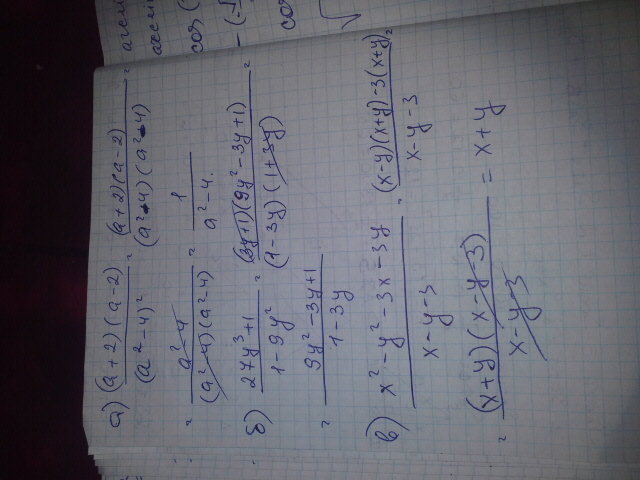 а) (a+2)(a-2)/(a²-4)² = (a+2)(a-2)/(a²-4)(a²-4) =
= a²-4/(a²-4)(a²-4) = 1/a²-4.
б) 27y³+1/1-9y² = (3y+1)(9y²-3y+1)/(1-3y)(1+3y) =
= 9y²-3y+1/1-3y
в) x²-y²-3x-3y/x-y-3 = (x-y)(x+y)-3(x+y)/x-y-3 =
= (x+y)(x-y-3)/x-y-3 = x+y
cos (
cos